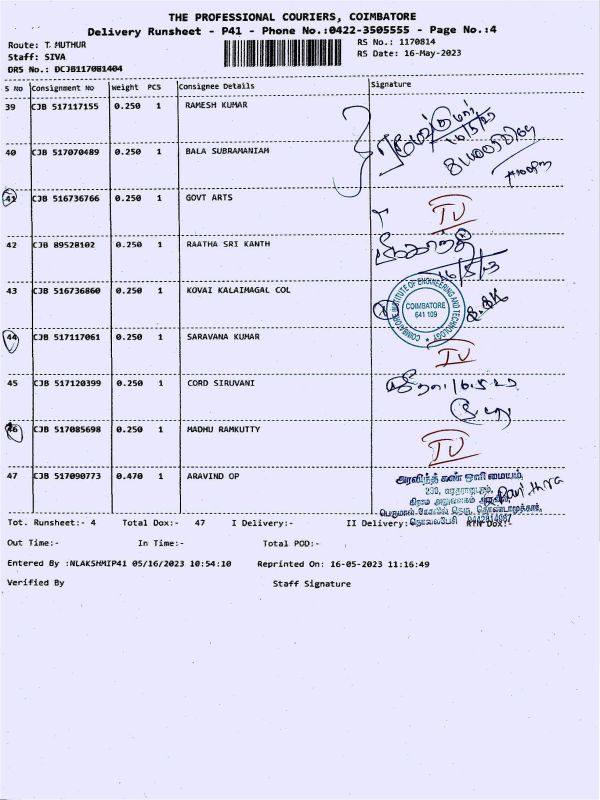 THE PROFESSIONAL COURIERS, COIMBATORE
Delivery Runsheet - P41 - Phone No.:0422-3505555 - Page No.:4
Route: T. MUTHUR
RS No.: 1170814
Staff: SIVA
RS Date: 16-May-2023
DRS No.: DCJB117081404
S No Consignment No Weight PCS Consignee Details Signature
39 CJB 517117155 0.250 1 RAMESH KUMAR
16/5/23
40 CJB 517070489 0.250 1 BALA SUBRAMANIAM
41 CJB 516736766 0.250 1 GOVT ARTS
42 CJB 89528102 0.250 1 RAATHA SRI KANTH
16/5/23
43 CJB 516736860 0.250 1 KOVAI KALAIMAGAL COL
COIMBATORE INSTITUTE OF ENGINEERING AND TECHNOLOGY
COIMBATORE
641 109
44 CJB 517117061 0.250 1 SARAVANA KUMAR
45 CJB 517120399 0.250 1 CORD SIRUVANI
46 CJB 517085698 0.250 1 MADHU RAMKUTTY
47 CJB 517090773 0.470 1 ARAVIND OP
அரவிந்த் கண் ஒளி மையம்,
Tot. Runsheet:- 4 Total Dox:- 47 I Delivery:- II Delivery: RTN Dox:-
Out Time:- In Time:- Total POD:-
Entered By :NLAKSHMIP41 05/16/2023 10:54:10 Reprinted On: 16-05-2023 11:16:49
Verified By Staff Signature